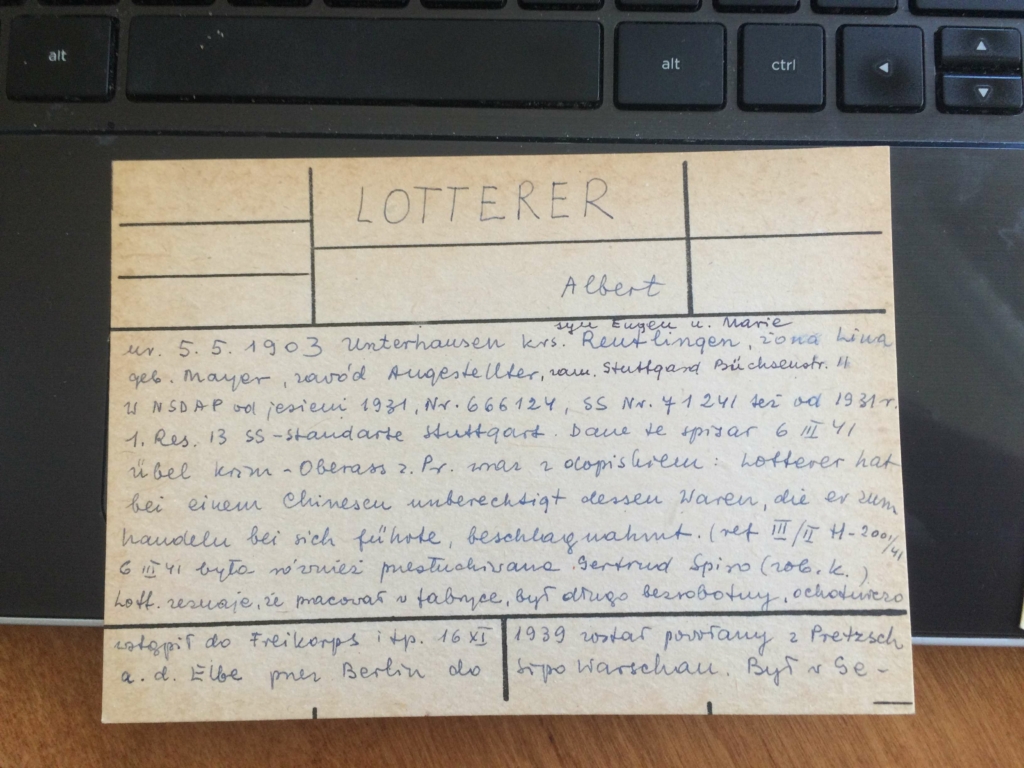 alt
alt
ctrl
◄
▲
▼
LOTTERER
Albert
syn Eugen u. Marie
ur. 5. 5. 1903 Unterhausen krs. Reutlingen, żona Lina
geb. Mayer, zawód Angestellter, zam. Stuttgard Büchsenstr. 11
w NSDAP od jesieni 1931, Nr. 666124, SS Nr. 71241 też od 1931 r.
1. Res. 13 SS-Standarte Stuttgart. Dane te spisał 6 III 41
Übel Krim-Oberass z. Pr. wraz z dopiskiem: Lotterer hat
bei einem Chinesen unberechtigt dessen Waren, die er zum
handeln bei sich führte, beschlagnahmt. (ref III/II H-2001/41
6 III 41 była również przesłuchiwana Gertrud Spiro (zob. k.)
Lott. zeznaje, że pracował w fabryce, był długo bezrobotny, ochotniczo
wstąpił do Freikorps itp. 16 XI 1939 został powołany z Pretzsch
a. d. Elbe przez Berlin do Sipo Warschau. Był w Ge-